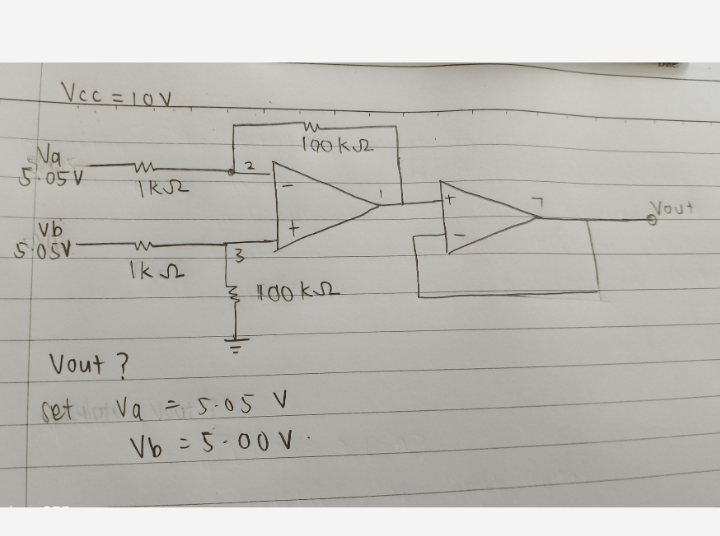 Vcc = 10V
Va
5.05V
1kΩ
2
100kΩ
-
+
1
Vb
5.05V
1k Ω
3
100 kΩ
+
-
7
Vout
Vout ?
set Va = 5.05 V
Vb = 5.00 V.